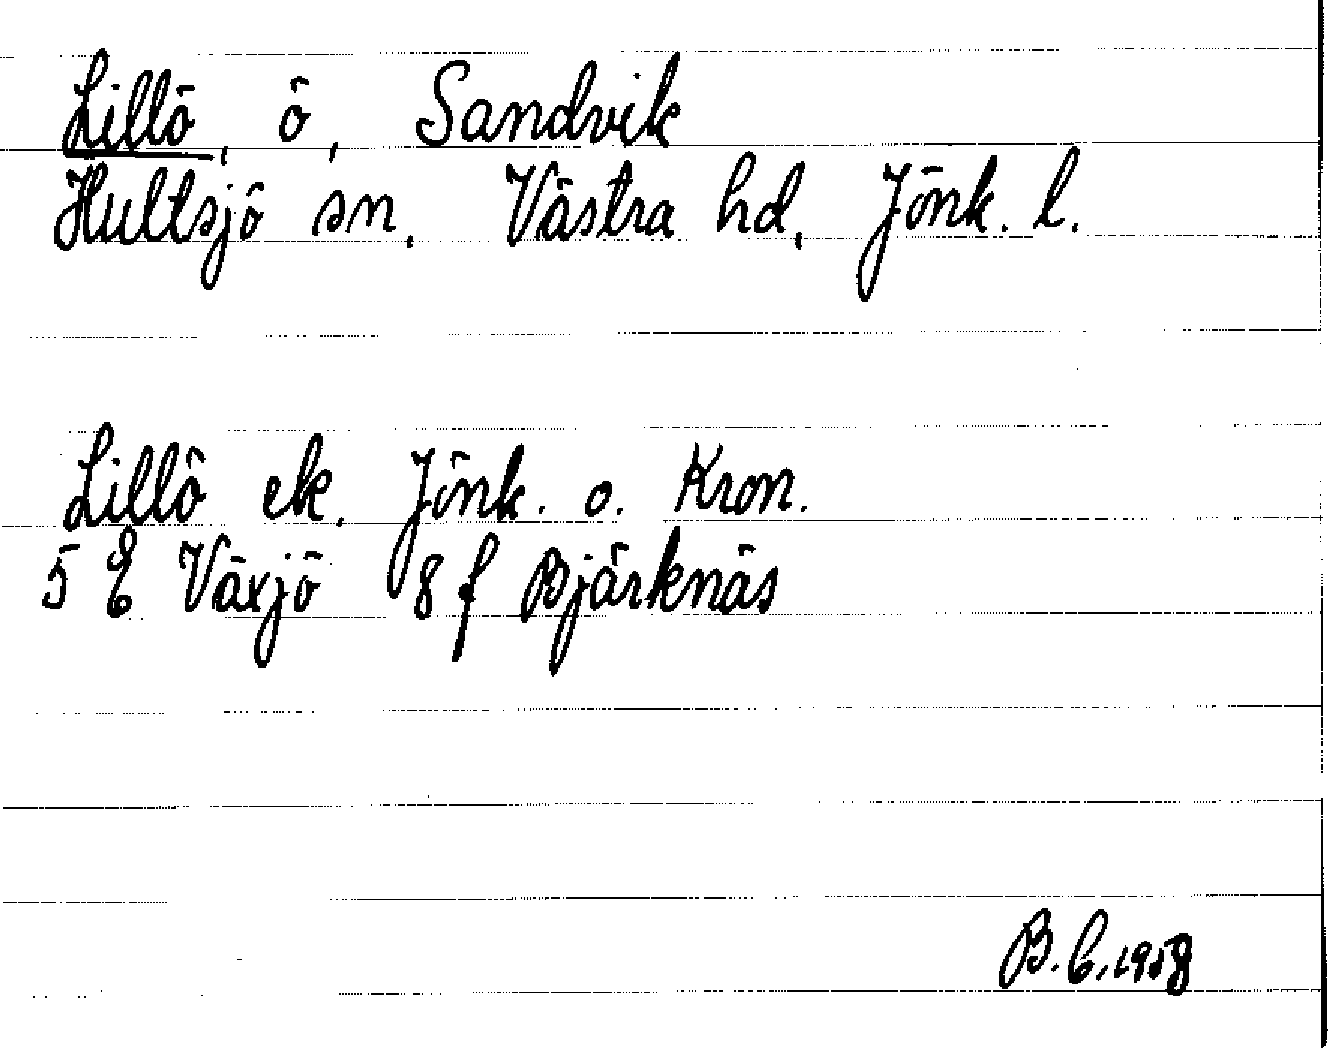 Lillö, ö, Sandvik
Hultsjö sn. Västra hd, Jönk. l.
Lillö ek. Jönk. o. Kron.
5 E Växjö 8 f Björknäs
B. C. 1958